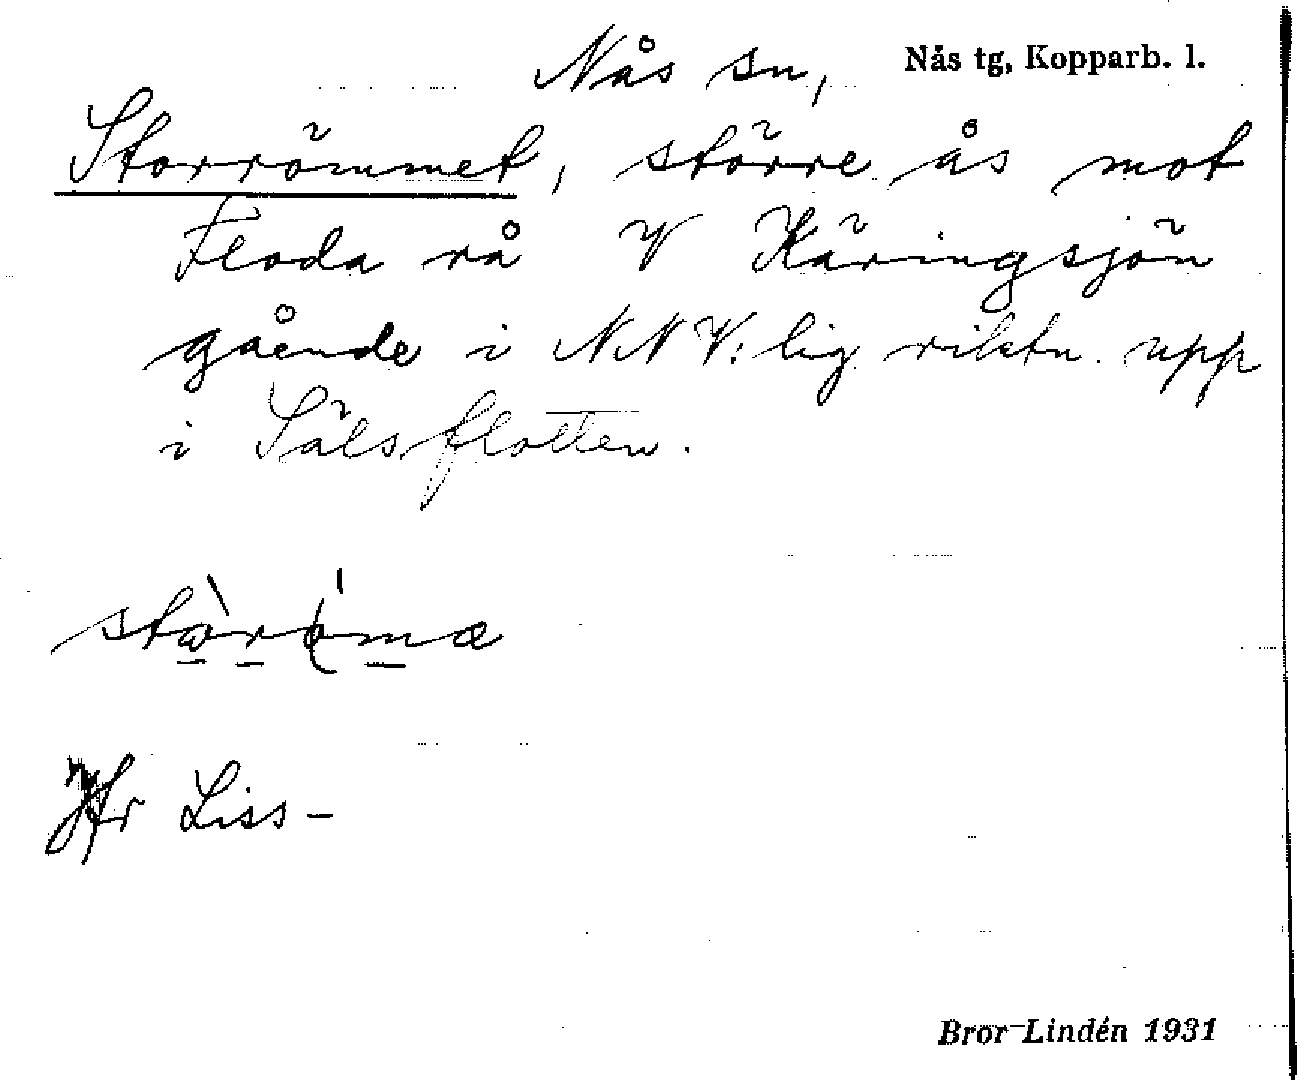 Nås sn, Nås tg, Kopparb. l.
Storrömmet, större ås mot
Floda rå V Käringsjön
gående i NNV:lig riktn. upp
i Sälsflotten.
Jfr Liss-
Bror Lindén 1931